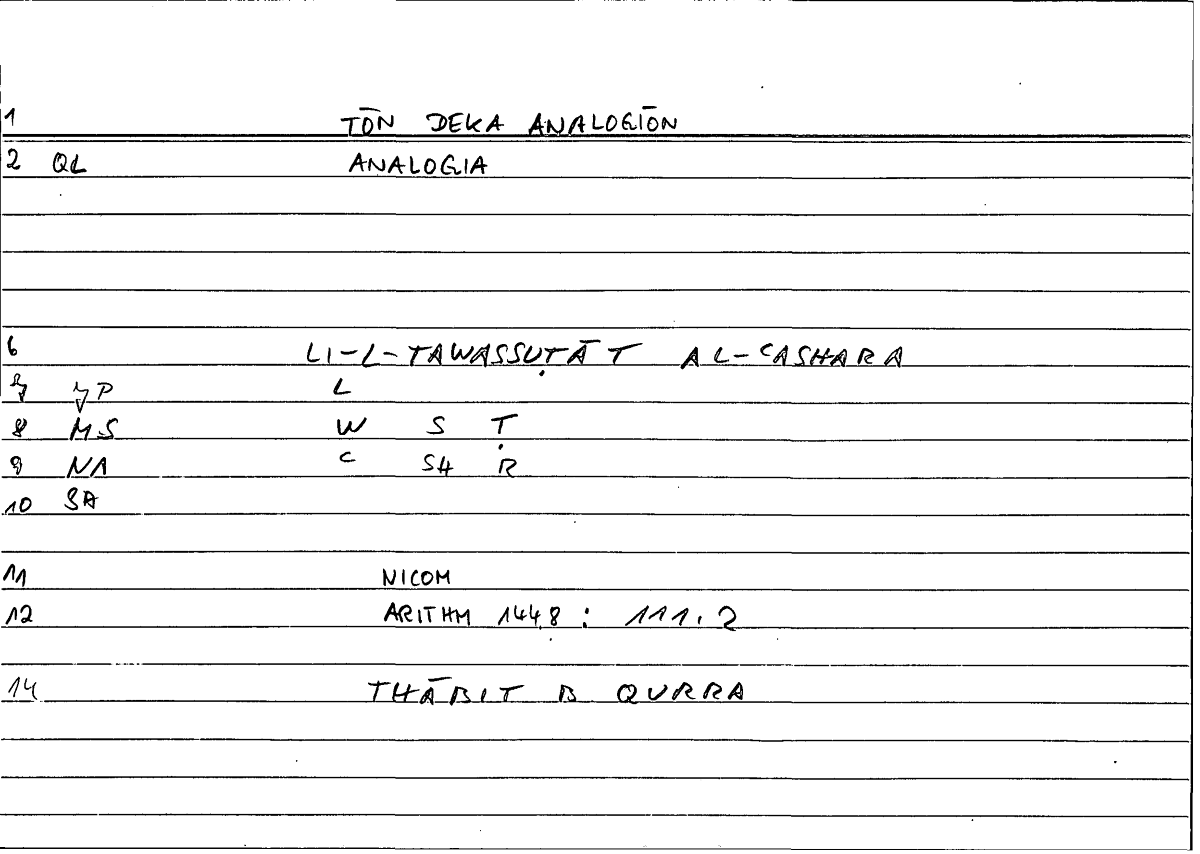 1 TŌN DEKA ANALOGIŌN
2 QL ANALOGIA
6 LI-L-TAWASSUṬĀT AL-CASHARA
L
8 MS W S Ṭ
9 NA C SH R
10 SA
11 NICOM
12 ARITHM 1448 : 111.2
14 THĀBIT B QURRA